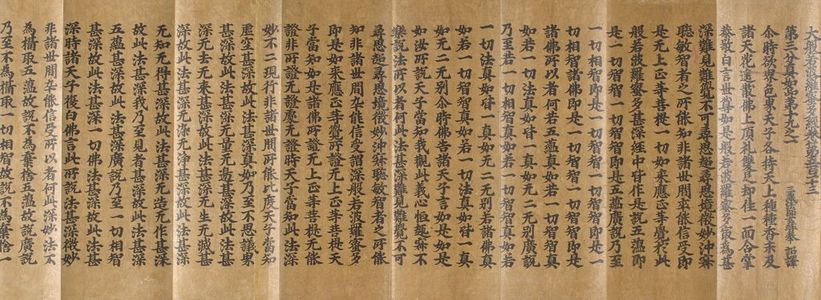 大般若波羅蜜多經卷第五百一十三
第三分真如品第十九之一 三藏法師玄奘奉 詔譯
尒時欲界色界天子各持天上種種香末及
諸天花遙散佛上頂禮雙足却住一面合掌
恭敬白言世尊如是般若波羅蜜多最為甚
深難見難覺不可尋思超尋思境微妙沖寂
聰敏智者之所能知非諸世間卒能信受即
是无上正等菩提一切如來應正等覺於此
般若波羅蜜多甚深經中皆作是說五蘊即
是一切智智一切智智即是五蘊廣說乃至
一切相智即是一切智智一切智智即是一
切相智諸佛即是一切智智一切智智即是
諸佛所以者何若五蘊真如若一切智智真
如若一切法真如皆一真如无二无別廣說
乃至若一切相智真如若一切智智真如若
一切法真如皆一真如无二无別若諸佛真
如若一切智智真如若一切法真如皆一真
如无二无別尒時佛告諸天子言如是如是
如汝所說天子當知我觀此義心恒趣寂不
樂說法所以者何此法甚深難見難覺不可
尋思超尋思境微妙沖寂聰敏智者之所能
知非諸世間卒能信受謂深般若波羅蜜多
即是如來應正等覺所證无上正等菩提天
子當知如是諸佛所證无上正等菩提无能
證非所證无證處无證時天子當知此法深
妙不二現行非諸世間所能比度天子當知
虛空甚深故此法甚深真如乃至不思議界
甚深故此法甚深无量无邊甚深故此法甚
深无去无來甚深故此法甚深无生无滅甚
深故此法甚深无染无淨甚深故此法甚深
无知无得甚深故此法甚深无造无作甚深
故此法甚深我乃至見者甚深故此法甚深
五蘊甚深故此法甚深廣說乃至一切相智
甚深故此法甚深一切佛法甚深故此法甚
深時諸天子復白佛言此所說法甚深微妙
非諸世間卒能信受所以者何此深妙法不
為攝取五蘊故說不為棄捨五蘊故說廣說
乃至不為攝取一切相智故說不為棄捨一